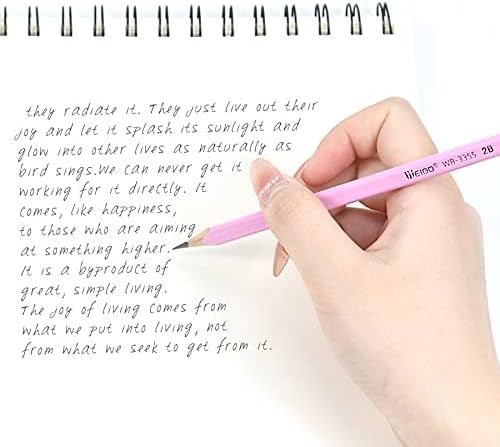 they radiate it. They just live out their
joy and let it splash its sunlight and
glow into other lives as naturally as
bird sings.We can never get it
working for it directly. It
comes, like happiness,
to those who are aiming
at something higher.
It is a byproduct of
great, simple living.
The joy of living comes from
what we put into living, not
from what we seek to get from it.
WEIBO® WR-3355 2B